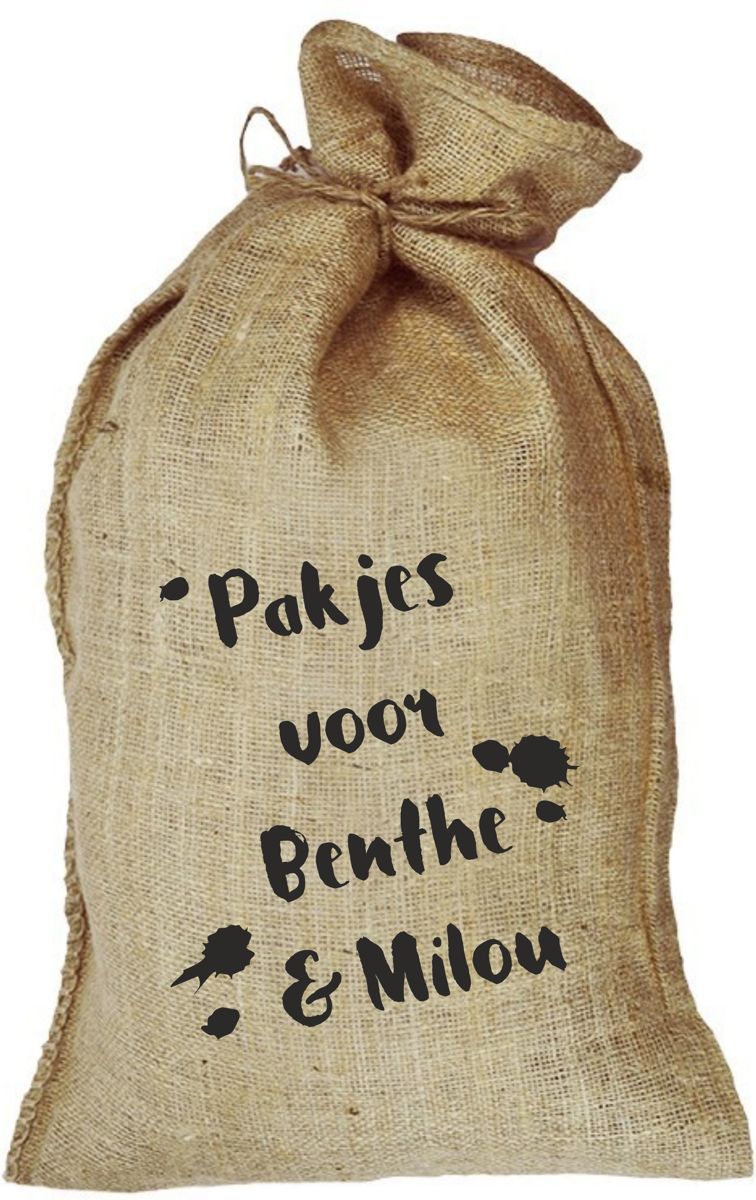 Pakjes
voor
Benthe
& Milou